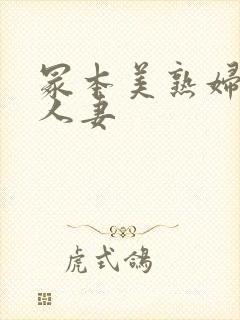 冢本美熟婦
人妻
虎式鴿